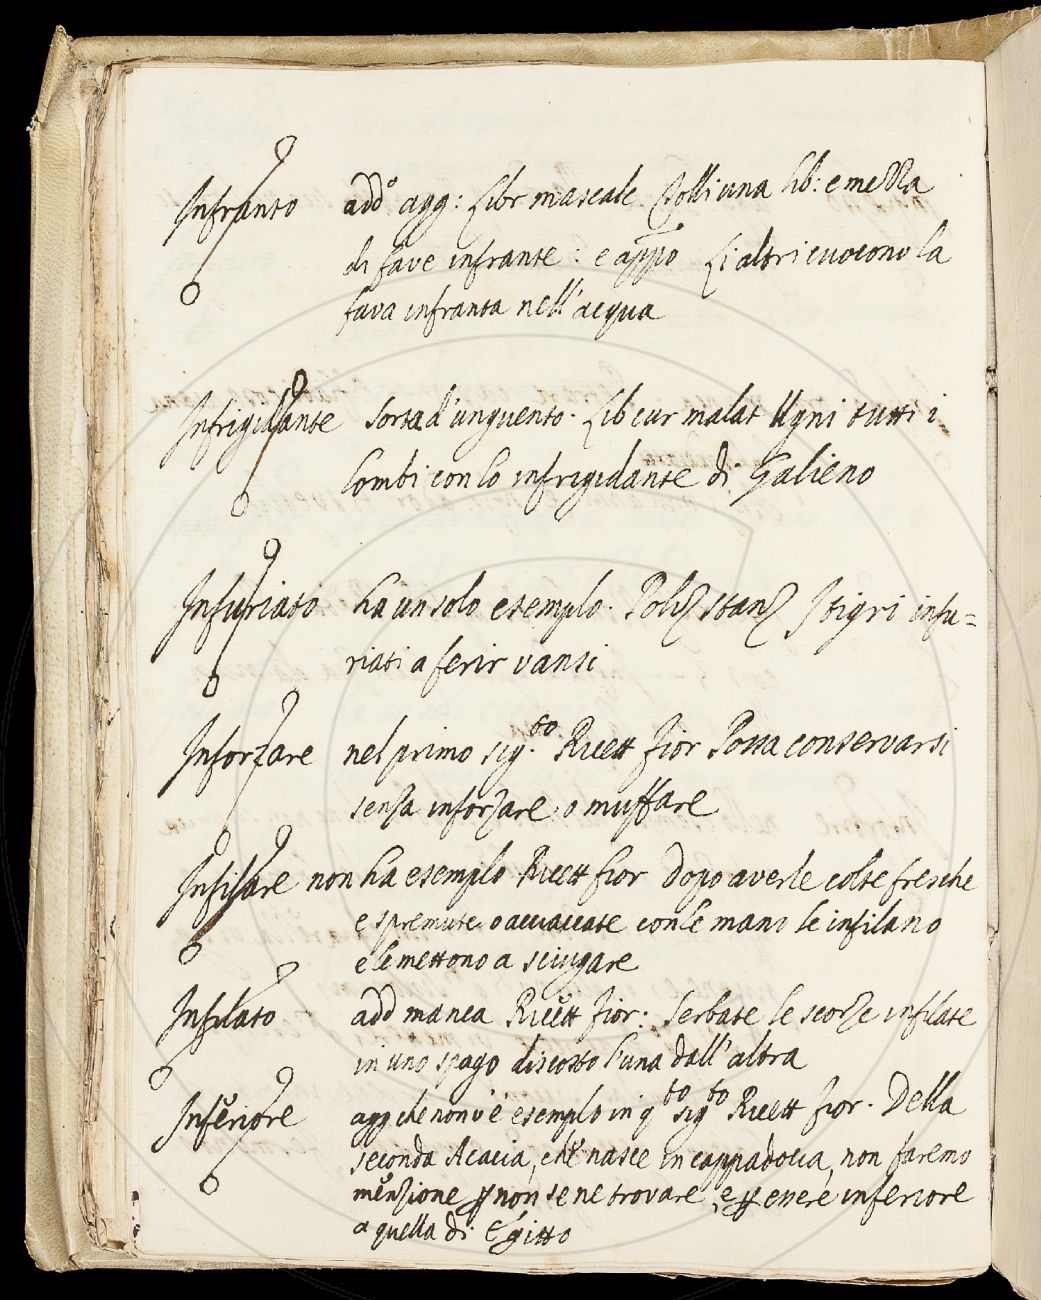 Infranto add.º agg: Libr mascalc. Tolli una lib: e mezza
di fave infrante: e appo Li altri cuocono la
fava infranta nell'acqua
Infrigidante sorta d'unguento. Lib cur malat Ugni tutti i
lombi con lo infrigidante di Galieno
Infuriato ha un solo esempio. Poliz stanz I tigri infu=
riati a ferir vansi
Inforzare nel primo sig.to Ricett Fior Possa conservarsi
senza inforzare o muffare
Infilare non ha esempio Ricett fior Dopo averle colte fresche
e spremute o acciaccate con le mani le infilano
e le mettono a sciugare
Infilato add manca Ricett Fior: Serbate le scorze infilate
in uno spago discosto l'una dall'altra
Inferiore agg che non v'è esempio in q.to sig.to Ricett Fior. Della
seconda Acacia, che nasce in cappadocia, non faremo
menzione p non se ne trovare, e p essere inferiore
a quella di Egitto